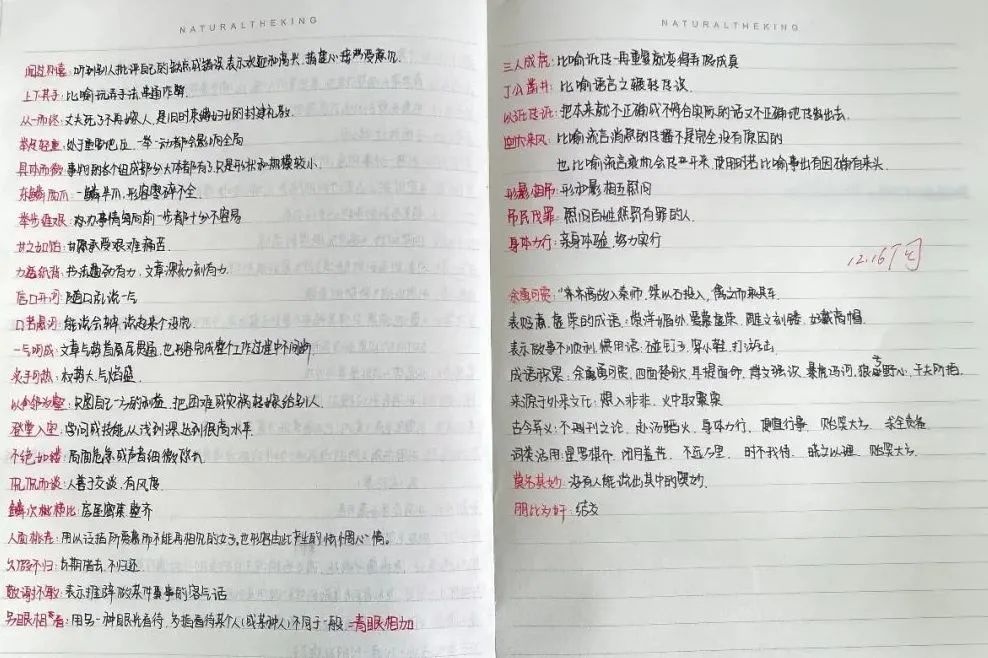 NATURALTHEKING
闻过则喜：听到别人批评自己的缺点或错误表示欢迎和高兴，指虚心接受意见.
上下其手：比喻玩弄手法串通作弊.
从一而终：丈夫死了不再嫁人，是旧时束缚妇女的封建礼教.
举足轻重：处于重要地位，一举一动都会影响全局
具体而微：事物的各个组成部分大体都有，只是形状和规模较小.
东鳞西爪：一鳞半爪，形容零碎不全.
举步维艰：办事情每向前一步都十分不容易
甘之如饴：甘愿承受艰难痛苦.
力透纸背：书法遒劲有力，文章深刻有力.
信口开河：随口乱说一气
口若悬河：能说会辩，说起来个没完.
一气呵成：文章气势首尾贯通，也形容完成整个工作过程中不间断.
炙手可热：权势大气焰盛.
以邻为壑：只图自己一方的利益，把困难或灾祸转嫁给别人.
登堂入室：学问或技能从浅到深达到很高水平.
不绝如缕：局面危急或声音细微悠长
侃侃而谈：人善于交谈，有风度.
鳞次栉比：房屋密集整齐
人面桃花：用以泛指所爱慕而不能再相见的女子，也形容由此产生的惆怅心情。
久假不归：长期借去，不归还
敬谢不敏：表示推辞做某件事的客气话
另眼相看：用另一种眼光看待，多指看待某个人（或某种人）不同于一般 →青眼相加
NATURALTHEKING
三人成虎：比喻讹传一再重复就变得弄假成真
丁公凿井：比喻语言之辗转传误.
以讹传讹：把本来就不正确或不符合实际的话又不正确地传出去.
空穴来风：比喻流言消息的传播不是完全没有原因的
也比喻流言乘机会传开来，使用时若比喻事出有因确有来头
形影相吊：形和影相互慰问
吊民伐罪：慰问百姓惩罚有罪的人.
身体力行：亲身体验，努力实行
12.16
余勇可贾："齐高固入秦师，桀以石投人，禽之而乘其车.
表贬意，虚荣的成语：崇洋媚外，爱慕虚荣，雕文刻镂，如戴高帽.
表示做事不顺利惯用语：碰钉子，穿小鞋，打游击
成语积累：余勇可贾，四面楚歌，耳提面命，博文强识，暴虎冯河，狼子野心，千夫所指.
来源于外来文化：想入非非，火中取栗
古今异义：不刊之论，赴汤蹈火，身体力行，便宜行事，贻笑大方，求全责备
词类活用：星罗棋布，闭月羞花，不远千里，时不我待，晓之以理，贻笑大方.
莫名其妙：没有人能说出其中的奥妙.
朋比为奸：结交